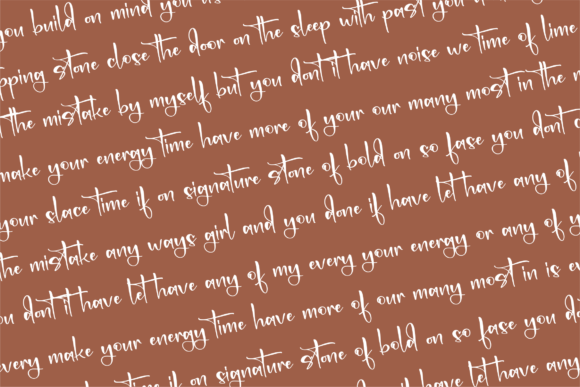 you build on mind you us
pping stone close the door on the sleep with past you
the mistake by myself but you dont it have noise we time of lime
make your energy time have more of your our many most in the
your slace time if on signature stone of bold on so fase you dont
the mistake any ways girl and you done if have let have any of
you dont it have let have any of my every your energy or any of y
every make your energy time have more of our many most in is ev
time if on signature stone of bold on so fase you do
if have let have any